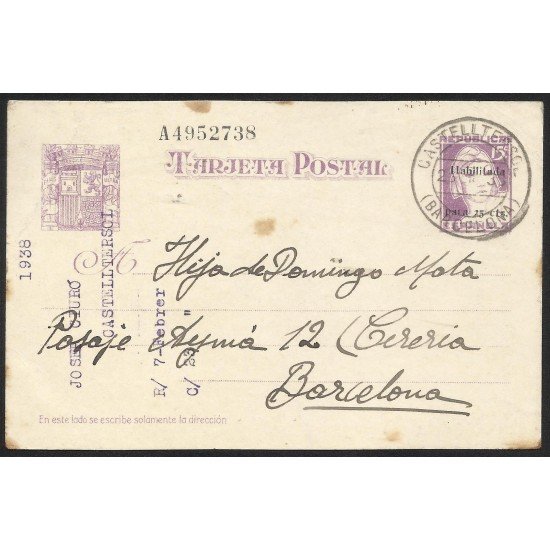 A4952738
TARJETA POSTAL
REPUBLICA
15
Habilitada
para 25 Cts.
CASTELLTERSOL
(BARCELONA)
A
Hija de Domingo Mota
Pasaje Aymá 12 Cereria
Barcelona
En este lado se escribe solamente la dirección
1938
JOSEP CIURÓ
CASTELLTERSOL
R/ 7-Febrer
C/ 23 "